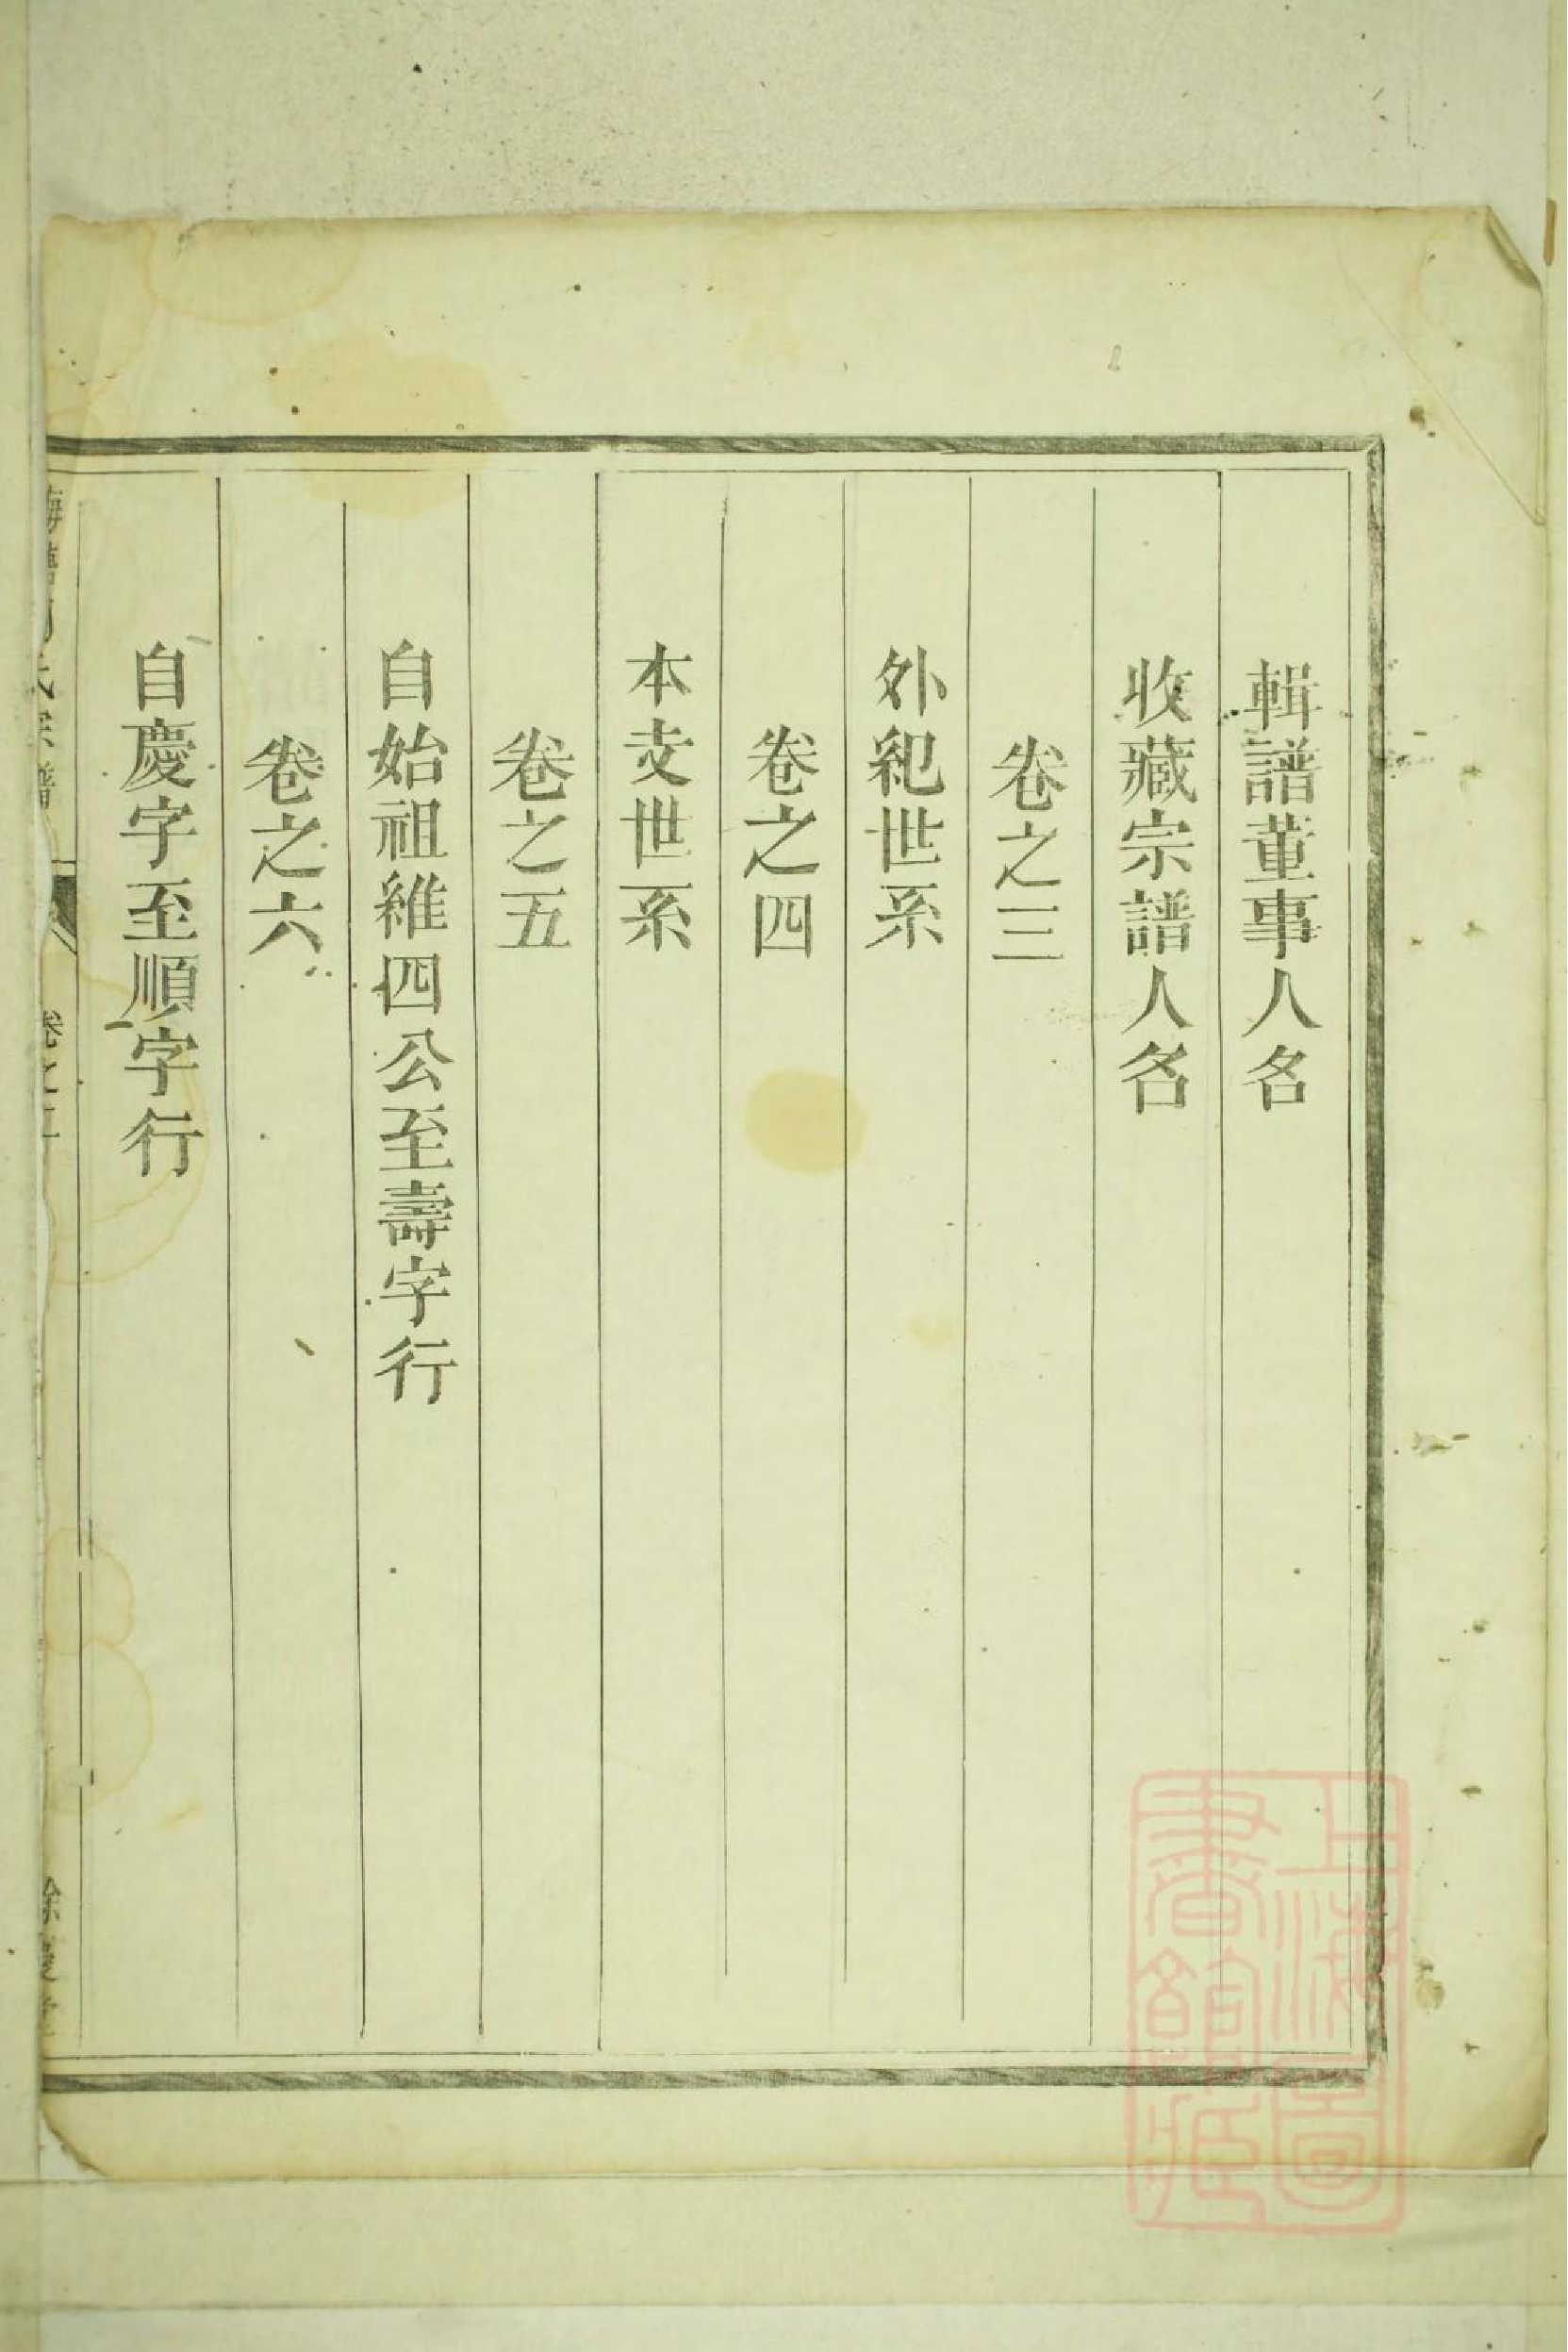 輯譜董事人名
收藏宗譜人名
卷之三
外紀世系
卷之四
本支世系
卷之五
自始祖維四公至壽字行
卷之六
自慶字至順字行
上海圖
書館藏